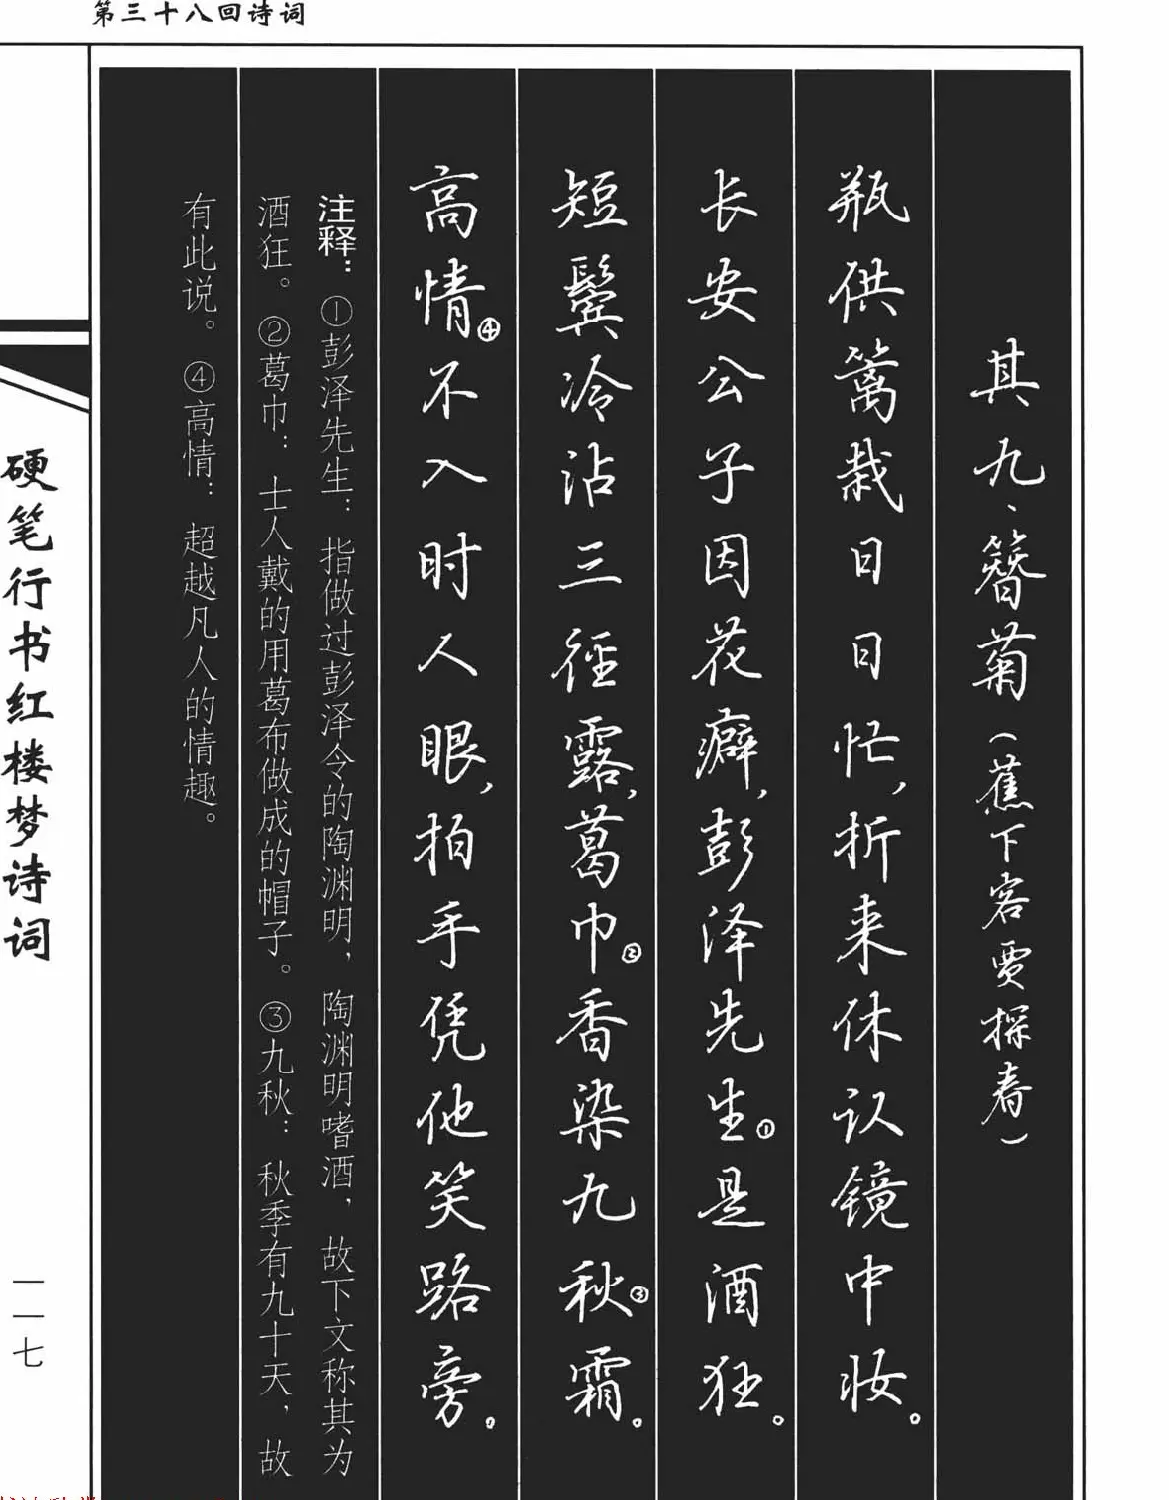 第三十八回诗词
其九、簪菊（蕉下客贾探春）
瓶供篱栽日日忙，折来休认镜中妆。
长安公子因花癖，彭泽先生①是酒狂。
短鬓冷沾三径露，葛巾②香染九秋③霜。
高情④不入时人眼，拍手凭他笑路旁。
注释：①彭泽先生：指做过彭泽令的陶渊明，陶渊明嗜酒，故下文称其为
酒狂。②葛巾：士人戴的用葛布做成的帽子。③九秋：秋季有九十天，故
有此说。④高情：超越凡人的情趣。
硬笔行书红楼梦诗词
一一七